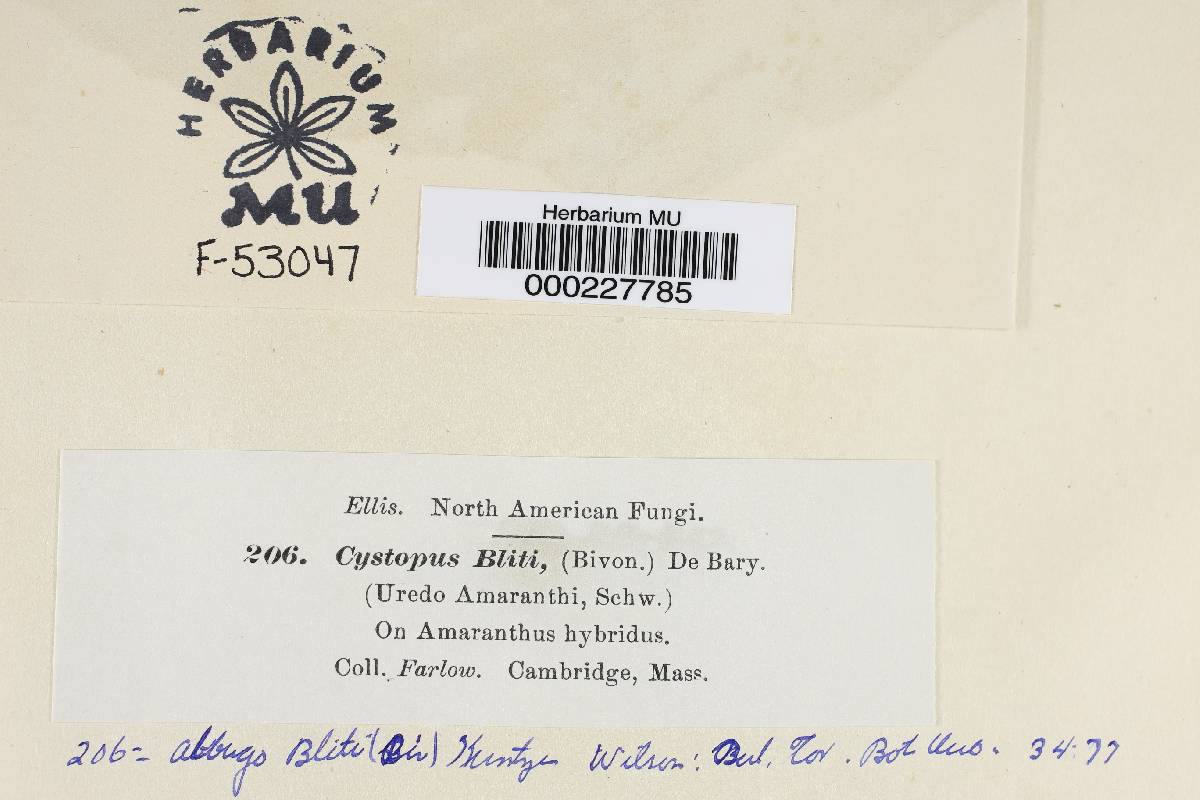 HERBARIUM
MU
F-53047
Herbarium MU
000227785
Ellis. North American Fungi.
206. Cystopus Bliti, (Bivon.) De Bary.
(Uredo Amaranthi, Schw.)
On Amaranthus hybridus.
Coll. Farlow. Cambridge, Mass.
206- Albugo Bliti (Biv) Kuntze Wilson: Bul. Tor. Bot 34:77